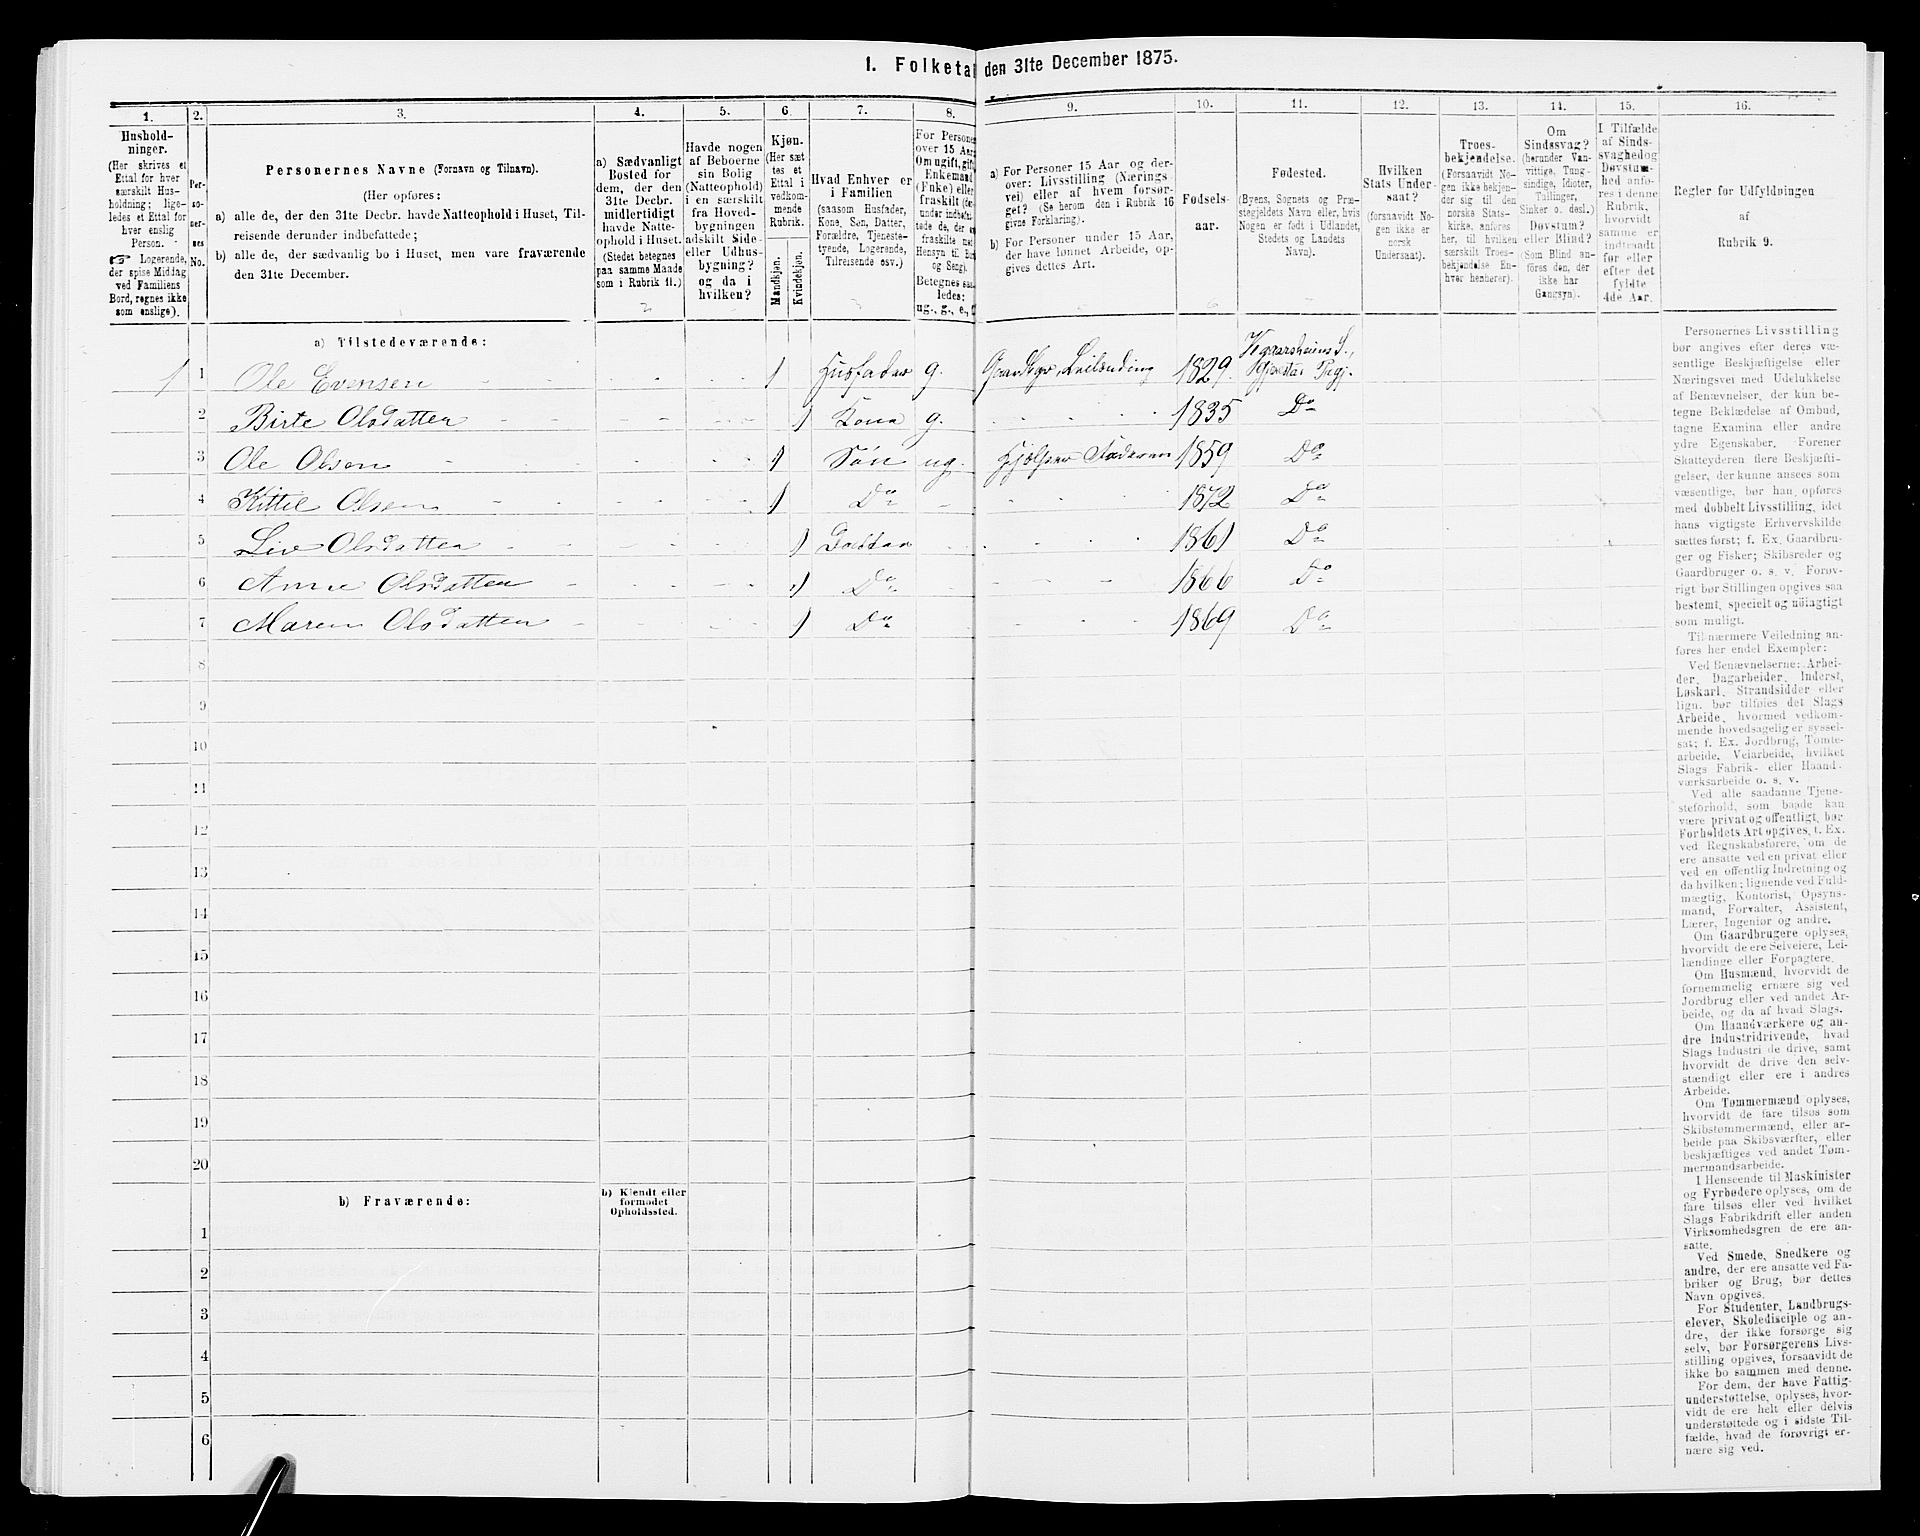 1. Folketa den 31te December 1875.
1.
Hushold-
ninger.
(Her skrives et
Ettal for hver
særskilt Hus-
holdning; lige-
ledes et Ettal for
hver enslig
Person.
☞ Logerende,
der spise Middag
ved Familiens
Bord, regnes ikke
som enslige).
2.
Per-
so-
ner-
nes
No.
3.
Personernes Navne (Fornavn og Tilnavn).
(Her opføres:
a) alle de, der den 31te Decbr. havde Natteophold i Huset, Til-
reisende derunder indbefattede;
b) alle de, der sædvanlig bo i Huset, men vare fraværende
den 31te December.
4.
a) Sædvanligt
Bosted for
dem, der den
31te Decbr.
midlertidigt
havde Natte-
ophold i Huset.
(Stedet betegnes
paa samme Maade
som i Rubrik 11.)
5.
Havde nogen
af Beboerne
sin Bolig
(Natteophold)
i en særskilt
fra Hoved-
bygningen
adskilt Side-
eller Udhus-
bygning?
og da i
hvilken?
6.
Kjøn.
(Her sæt
tes et
Ettal i
vedkom-
mende
Rubrik.
Mandkjøn.
Kvindekjøn.
7.
Hvad Enhver er
i Familien
(saasom Husfader,
Kone, Søn, Datter,
Forældre, Tjeneste-
tyende, Logerende,
Tilreisende osv.)
8.
For Persone
over 15 Aar
Om ugift, gift
Enkemand
(Enke) eller
fraskilt
Betegnes saa
ledes:
ug., g., e.,
9.
a) For Personer 15 Aar og der-
over: Livsstilling (Nærings
vei) eller af hvem forsør-
get? (Se herom den i Rubrik 16
givne Forklaring).
b) For Personer under 15 Aar,
der have lønnet Arbeide, op-
gives dettes Art.
10.
Fødsels-
aar.
11.
Fødested.
(Byens, Sognets og Præ-
stegjeldets Navn eller, hvis
Nogen er født i Udlandet,
Stedets og Landets
Navn).
12.
Hvilken
Stats Under-
saat?
(forsaavidt No-
gen ikke er
norsk
Undersaat).
13.
Troes-
bekjendelse.
(Forsaavidt No-
gen ikke bekjen-
der sig til den
norske Stats-
kirke, anføres
her, til hvilken
særskilt Troes-
bekjendelse En-
hver henhører).
14.
Om
Sindssvag?
(herunder Van-
vittige, Tung-
sindige, Idioter,
Tullinger,
Sinker o. desl.)
Døvstum?
eller Blind?
(Som Blind an-
føres den, der
ikke har
Gangsyn).
15.
I Tilfælde
af Sinds-
svaghed og
Døvstum-
hed anfø-
res i denne
Rubrik,
hvorvidt
samme er
indtraadt
før eller
efter det
fyldte
4de Aar.
16.
Regler for Udfyldningen
af
Rubrik 9.
a) Tilstedeværende:
1 1 Ole Evensen 1 Husfader g. Gaardbgr, Leilænding 1829. Hgaarsheims S., Gjerstad Prgj.
2 Birte Olsdatten 1 Kona g. 1835 Do
3 Ole Olsen 1 Søn ug. Hjælper Faderen 1859 Do
4 Kittil Olsen 1 Do 1872 Do
5 Liv Olsdatten 1 Datter 1861 Do
6 Anne Olsdatten 1 Do 1866 Do
7 Maren Olsdatten 1 Do 1869 Do
8
9
10
11
12
13
14
15
16
17
18
19
20
b) Fraværende:
b) Kjendt eller
formodet
Opholdssted.
1
2
3
4
5
6
Personernes Livsstilling
bør angives efter deres væ-
sentlige Beskjæftigelse eller
Næringsvei med Udelukkelse
af Benævnelser, der kun be-
tegne Beklædelse af Ombud,
tagne Examina eller andre
ydre Egenskaber. Forener
Skatteyderen flere Beskjæfti-
gelser, der kunne ansees som
væsentlige, bør han opføres
med dobbelt Livsstilling, idet
hans vigtigste Erhvervskilde
sættes først; f. Ex. Gaardbru-
ger og Fisker; Skibsreder og
Gaardbruger o. s. v. Forøv-
rigt bør Stillingen opgives saa
bestemt, specielt og nöiagtigt
som muligt.
Til nærmere Veiledning an-
føres her endel Exempler:
Ved Benævnelserne: Arbei-
der, Dagarbeider, Inderst,
Løskarl, Strandsidder eller
lign. bør tilføies det Slags
Arbeide, hvormed vedkom-
mende hovedsagelig er syssel-
sat; f. Ex. Jordbrug, Tomte-
arbeide, Veiarbeide, hvilket
Slags Fabrik- eller Haand-
værksarbeide o. s. v.
Ved alle saadanne Tjene-
steforhold, som baade kan
være privat og offentligt, bør
Forholdets Art opgives, t. Ex.
ved Regnskabsførere, om de
ere ansatte ved en privat eller
ved en offentlig Indretning og
da hvilken; lignende ved Fuld-
mægtig, Kontorist, Opsyns-
mand, Forvalter, Assistent,
Lærer, Ingeniør og andre.
Om Gaardbrugere oplyses,
hvorvidt de ere Selveiere, Lei-
lændinge eller Forpagtere.
Om Husmænd, hvorvidt de
fornemmelig ernære sig ved
Jordbrug eller ved andet Ar-
beide, og da af hvad Slags.
Om Haandværkere og an-
dre Industridrivende, hvad
Slags Industri de drive, samt
hvorvidt de drive den selv-
stændigt eller ere i andres
Arbeide.
Om Tømmermænd oplyses,
hvorvidt de fare tilsøs som
Skibstømmermænd, eller ar-
beide paa Skibsværfter, eller
beskjæftiges ved andet Tøm-
mermandsarbeide.
I Henseende til Maskinister
og Fyrbødere oplyses, om de
fare tilsøs eller ved hvilket
Slags Fabrikdrift eller anden
Virksomhedsgren de ere an-
satte.
Ved Smede, Snedkere og
andre, der ere ansatte ved Fa-
briker og Brug, bør dettes
Navn opgives.
For Studenter, Landbrugs-
elever, Skoledisciple og an-
dre, der ikke forsørge sig
selv, bør Forsørgerens Livs-
stilling opgives, forsaavidt de
ikke bo sammen med denne.
For dem, der have Fattig-
understøttelse, oplyses, hvor-
vidt de ere helt eller delvis
understøttede og i sidste Til-
fælde, hvad de forøvrigt er-
nære sig ved.